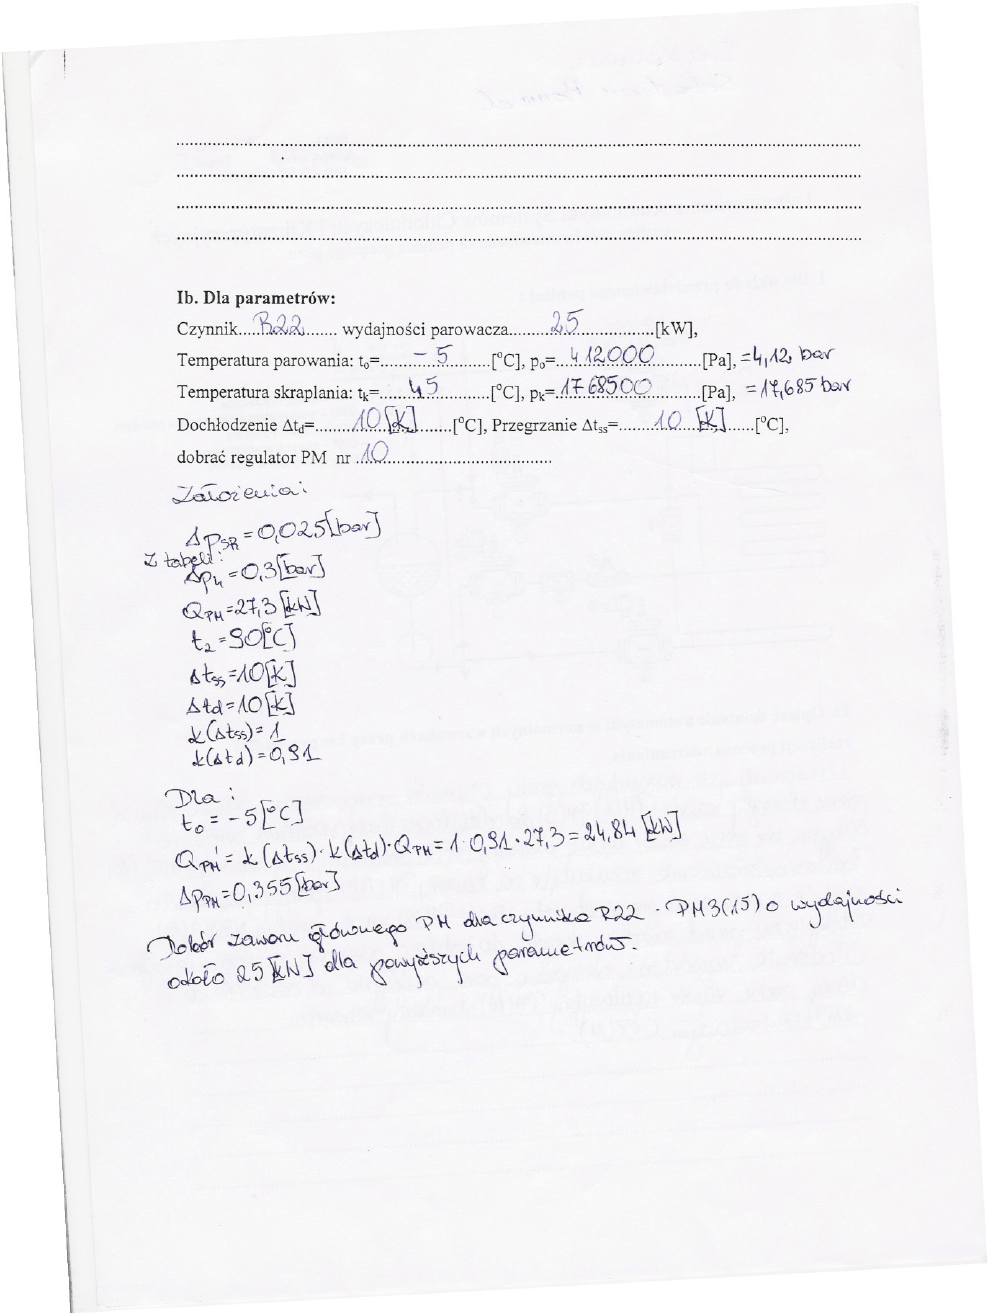 Ib. Dla parametrów:
Czynnik.....R22....... wydajności parowacza..........25..................[kW],
Temperatura parowania: t₀=.......– 5..........[°C], p₀=...412000...........[Pa], =4,12 bar
Temperatura skraplania: tₖ=......45..........[°C], pₖ=1768500...........[Pa], =17,685 bar
Dochłodzenie Δt_d=........10 [K].......[°C], Przegrzanie Δt_ss=........10 [K]......[°C],
dobrać regulator PM nr ..10.......................................
Założenia:
Δp_SR = 0,025 [bar]
Z tabeli:
Δp₄ = 0,3 [bar]
Q_PM = 27,3 [kW]
t₂ = 90 [°C]
Δt_ss = 10 [K]
Δtd = 10 [K]
k(Δt_ss) = 1
k(Δtd) = 0,91
Dla:
t₀ = – 5 [°C]
Q_PM' = k(Δt_ss) · k(Δtd) · Q_PM = 1 · 0,91 · 27,3 = 24,84 [kW]
Δp_PM = 0,355 [bar]
Dobór zaworu głównego PM dla czynnika R22 - PM3(15) o wydajności
około 25 [kW] dla powyższych parametrów.